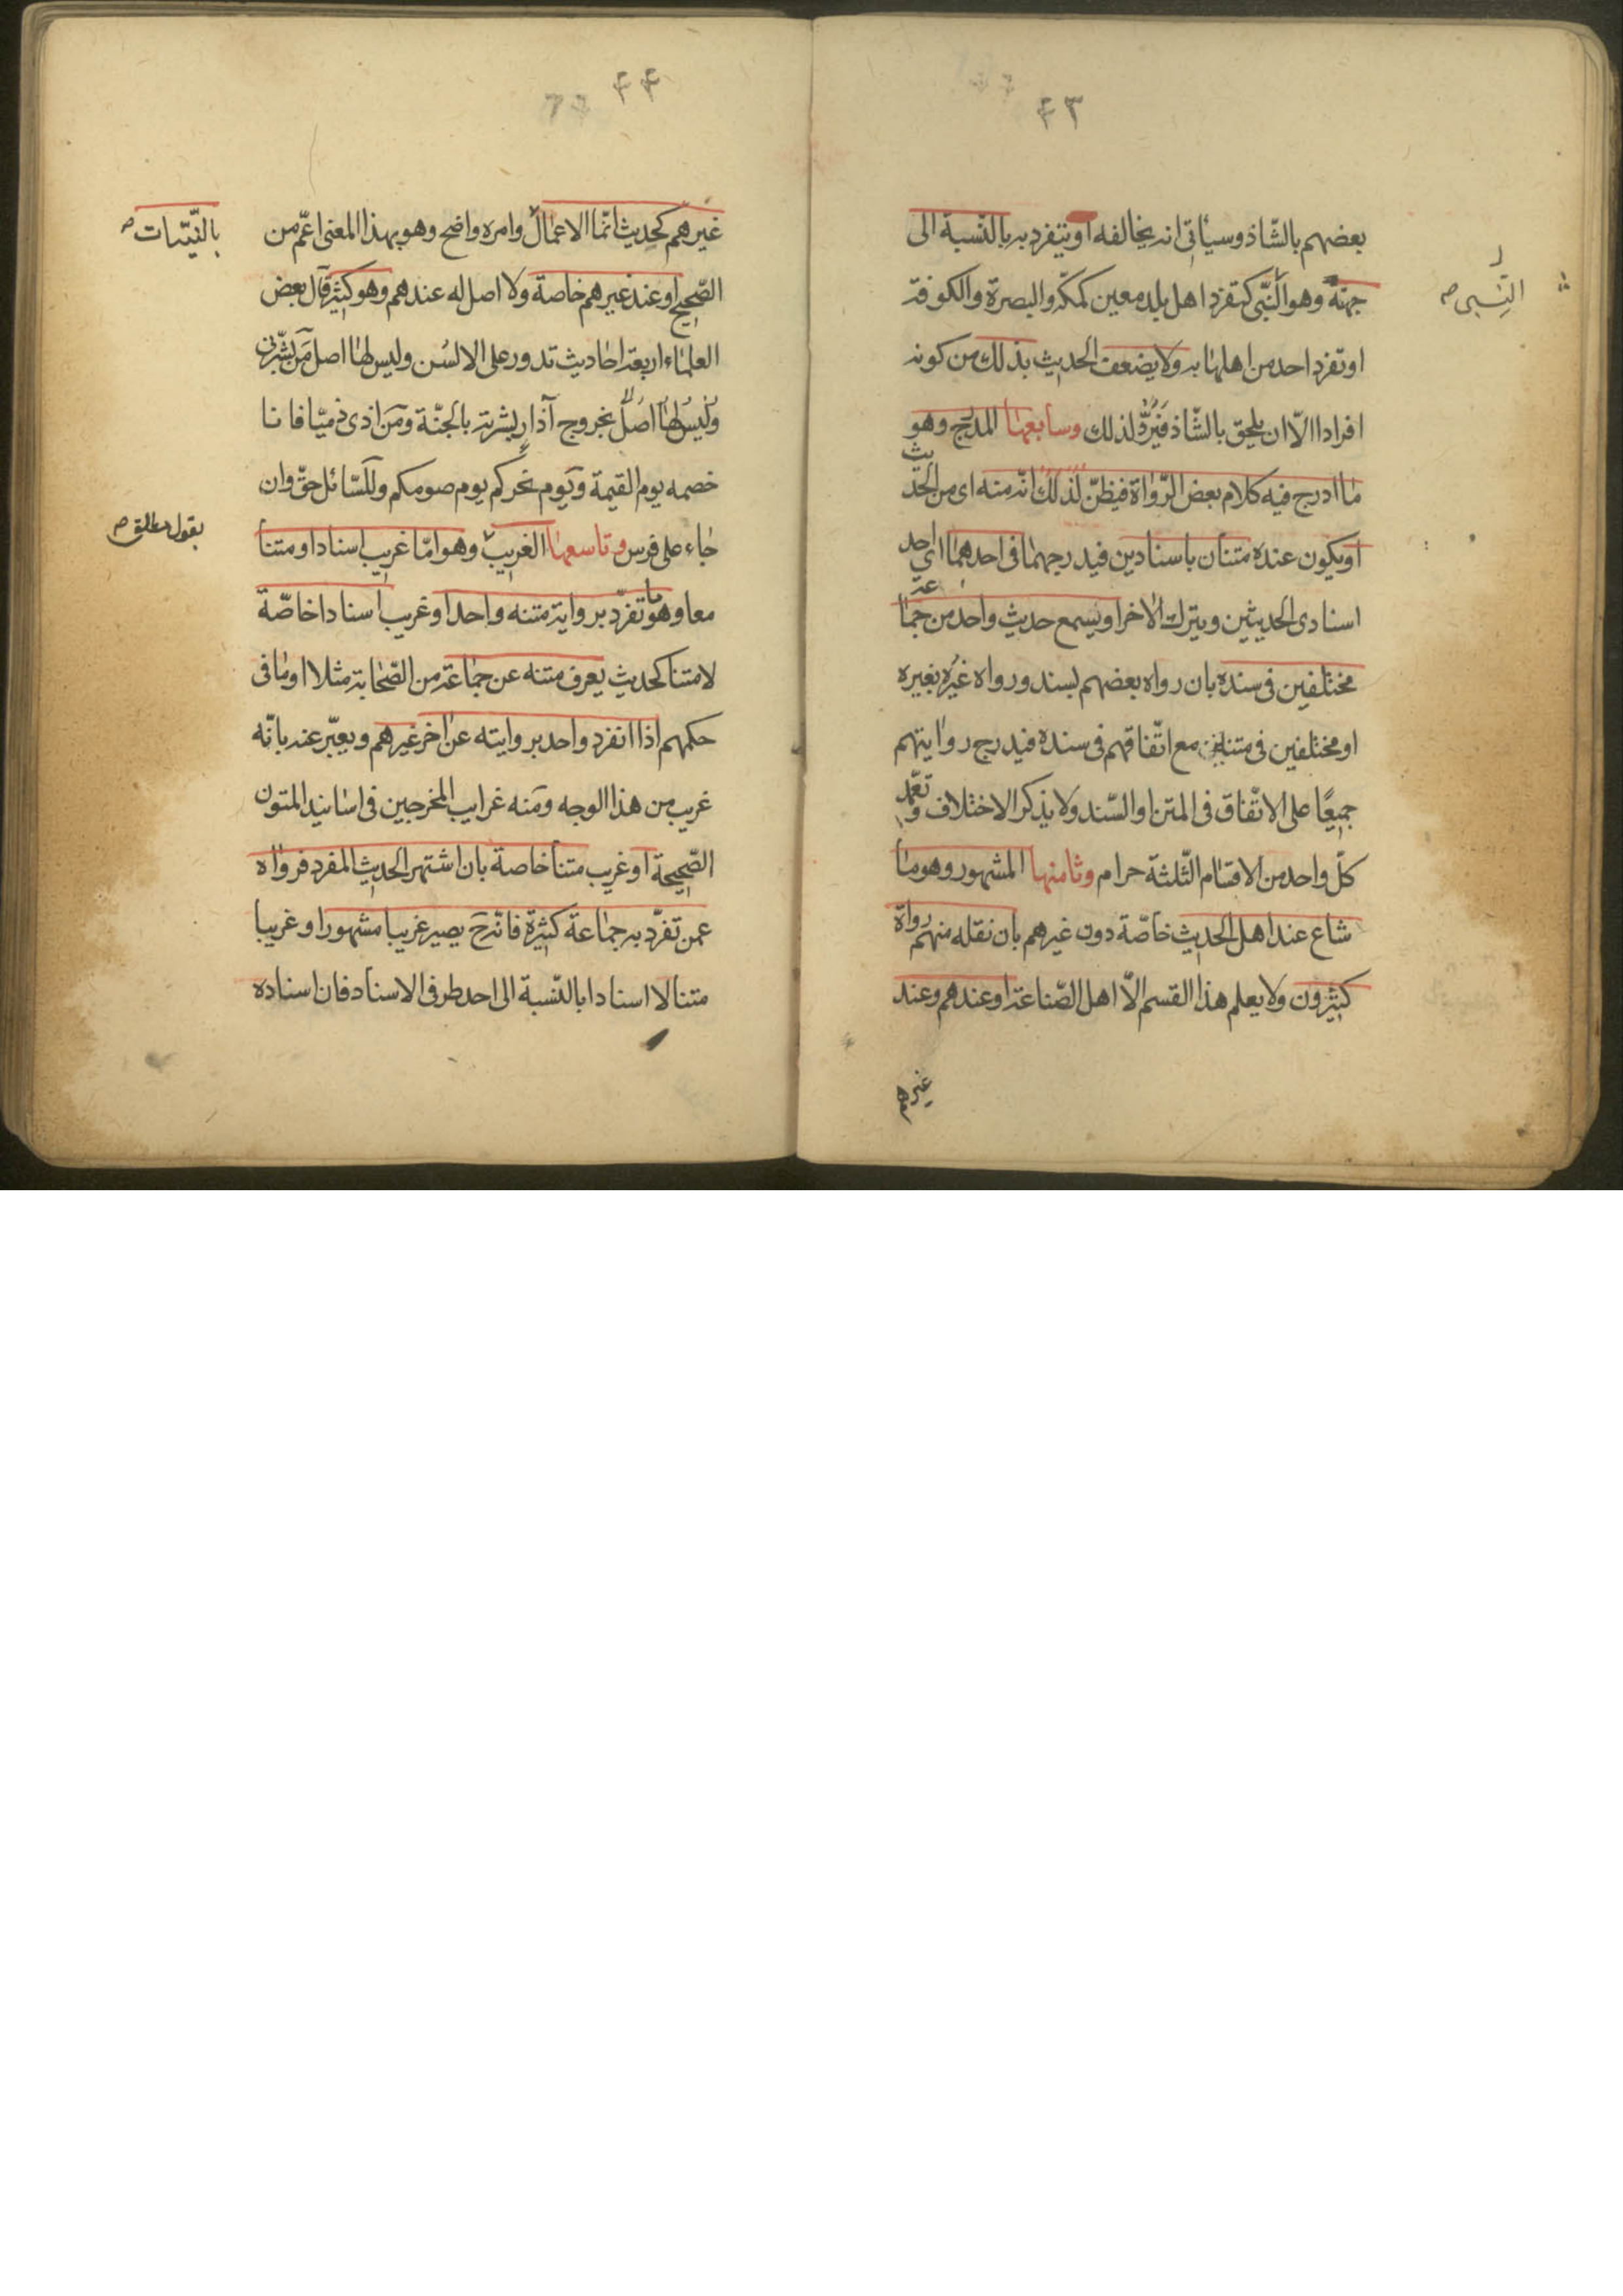 ٤٣
بعضهم بالشّاذ وسيأتى انه يخالفه او يتفرد به بالنّسبة الى
جهته وهو النّبى كتفرد اهل بلد معين كمكة والبصرة والكوفة
النِّسبى صح
او تفرد احد من اهلها به ولا يضعف الحديث بذلك من كونه
افرادا الّا ان يلحق بالشّاذ فَيُرَدُّ لذلك وسابعها المدرج وهو
ما ادرج فيه كلام بعض الرّواة فيظنّ لذلك انّه منه اى من الحديث
او يكون عنده متنان باسنادين فيدرجهما فى احدهما اى احد
اسنادى الحديثين ويترك الاخر او يسمع حديث واحد من جماعة
مختلفين فى سنده بان رواه بعضهم بسند ورواه غيُره بغيره
او مختلفين فى متنه مع اتّفاقهم فى سنده فيدرج روايتهم
جميعًا على الاتّفاق فى المتن او السّند ولا يذكر الاختلاف وتعمّد
كلّ واحد من الاقسام الثّلثة حرام وثامنها المشهور وهو ما
شاع عند اهل الحديث خاصّة دون غيرهم بان نقله منهم رواة
كثيرون ولا يعلم هذا القسم الّا اهل الصّناعة او عندهم وعند
غيرهم
٤٤
غيرهم كحديث انّما الاعمال وامره واضح وهو بهذا المعنى اعمّ من
بالنّيّات صح
الصّحيح او عند غيرهم خاصة ولا اصل له عندهم وهو كثير قال بعض
العلماء اربعة احاديث تدور على الالسُن وليس لها اصل مَن بشّرنى
وليس لها اصل بخروج آذار بشرته بالجنّة ومَن اذى ذميّا فانا
خصمه يوم القيمة ويَوم نحركم يوم صومكم وللسّائل حقّ وان
جاء على فرس وتاسعها الغريب وهو امّا غريب اسنادا ومتنا
بقول مطلق صح
معا وهو ما تفرّد برواية متنه واحد او غريب اسنادا خاصّة
لا متنا كحديث يعرف متنه عن جماعة من الصّحابة مثلا او ما فى
حكمهم اذا انفرد واحد بروايته عن اخر غيرهم ويعبّر عنه بانّه
غريب من هذا الوجه ومَنه غرايب المخرجين فى اسانيد المتون
الصّحيحة او غريب متنا خاصة بان اشتهر الحديث المفرد فرواه
عمن تفرّد به جماعة كثيرة فانّه ح يصير غريبا مشهورا وغريبا
متنا لا اسنادا بالنّسبة الى احد طرفى الاسناد فان اسناده